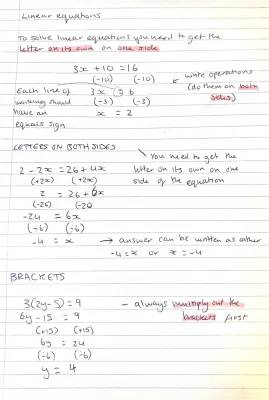 Linear equations
To solve linear equations you need to get the
letter on its own on one side
3x + 10 = 16
(-10) (-10) ← write operations
Each line of 3x = 6 (do them on both
working should (÷3) (÷3) sides)
have an x = 2
equals sign
LETTERS ON BOTH SIDES
You need to get the
2 - 2x = 26 + 4x letter on its own on one
(+2x) (+2x) side of the equation
2 = 26 + 6x
(-26) (-26)
-24 = 6x
(÷6) (÷6)
-4 = x → answer can be written as either
-4 = x or x = -4
BRACKETS
3(2y - 5) = 9 - always multiply out the
6y - 15 = 9 brackets first
(+15) (+15)
6y = 24
(÷6) (÷6)
y = 4